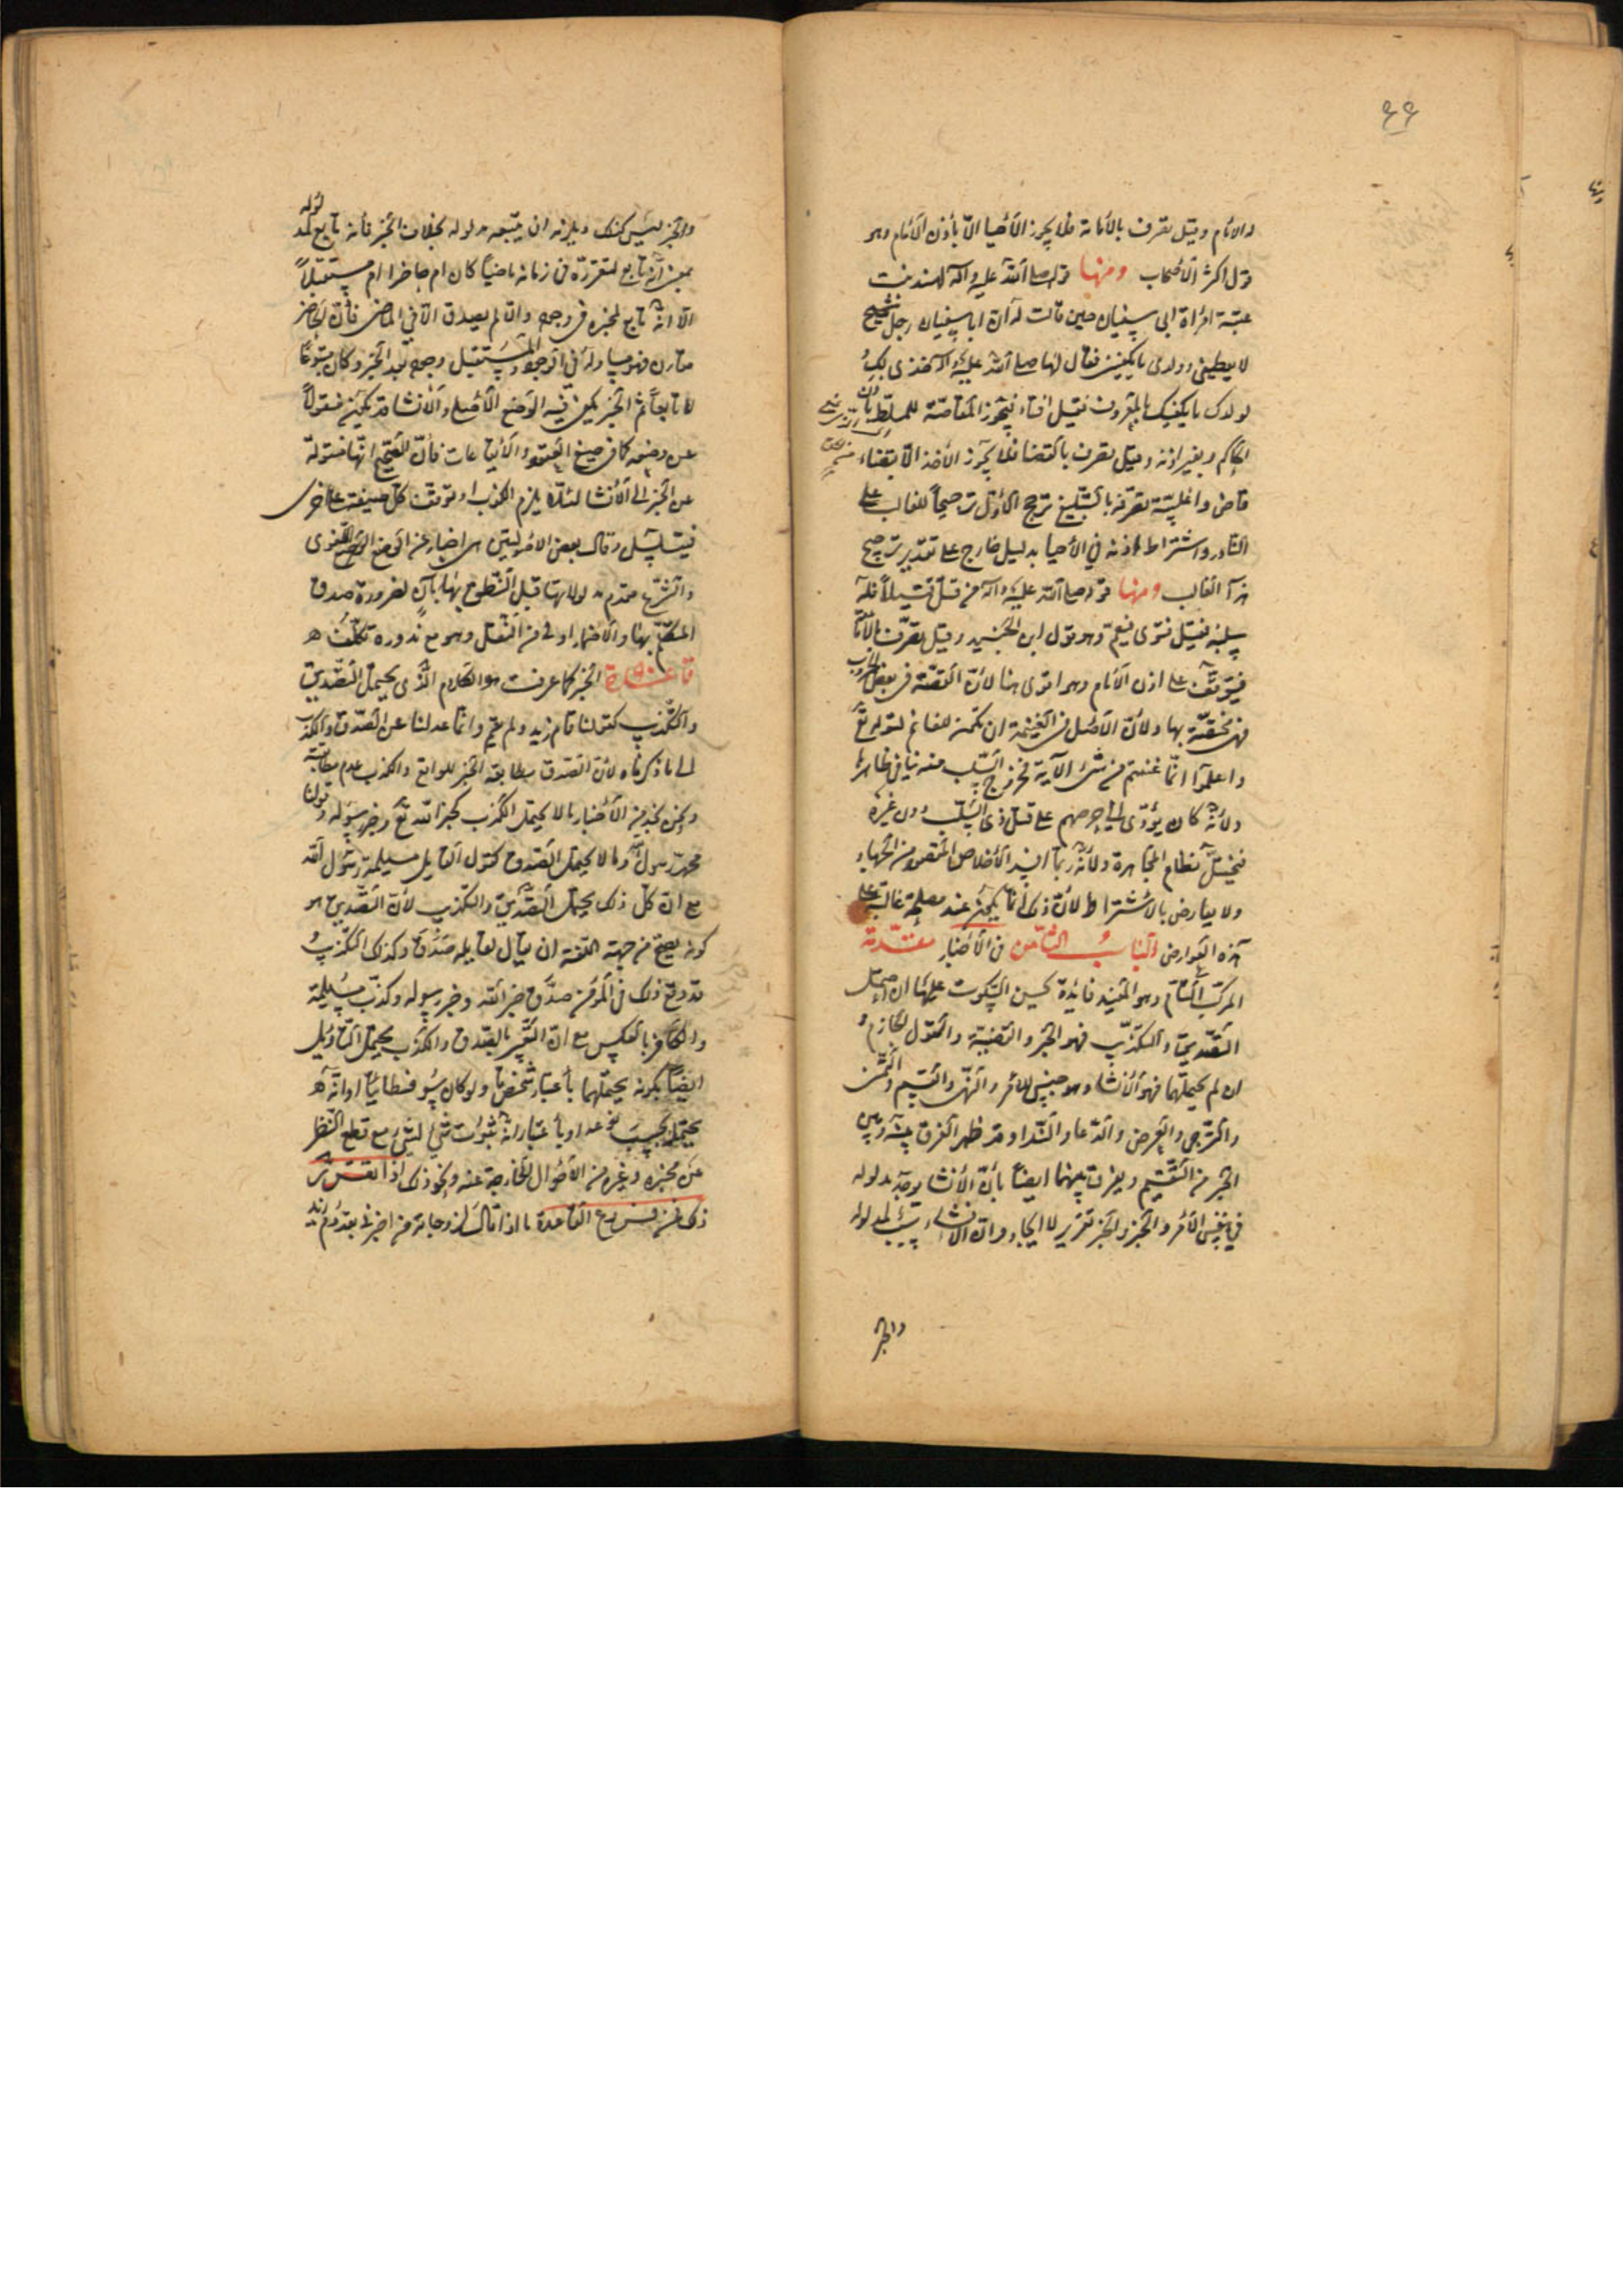 ٤٤
والامام وقيل تصرف بالامامة فلا يجوز الأحيا الّا بأذن الأمام وهو
قول اكثر الأصحاب ومنها قوله صلى الله عليه وآله لهند بنت
عتبة امرأة ابى سفيان حين قالت له ان ابا سفيان رجل شحيح
لا يعطينى وولدى ما يكفينى فقال لها صلى الله عليه وآله خذى لك
لولدك ما يكفيك بالمعروف فقيل افتاء فيجوز المقاصّة للمسلّط باذن
الحاكم وبغير اذنه وقيل تصرف بالقضا فلا يجوز الأخذ الّا بقضاء
قاض واغلبيّة تصرفه بالتبليغ ترجح الأول ترجيحاً للغالب على
النادر واشتراط اذنه في الأحيا بدليل خارج على تقدير ترجيح
هذا الغالب ومنها قوله صلى الله عليه وآله من قتل قتيلاً فله
سلبه فقيل فتوى فيعم وهو قول ابن الجنيد وقيل تصرّف بالأمامة
فيتوقف على اذن الأمام وهو اقوى هنا لأن القصّة فى بعض الحروب
فهى مختصّة بها ولأن الأصل فى الغنيمة ان تكون للغانم لقوله تع
واعلموا انّما غنمتم من شئ الآية فخروج السّلب منه ينافى ظاهرها
ولأنّه كان يؤدّى الى حرصهم على قتل ذى السّلب دون غيره
فيختل نظام المجاهدة ولأنّه ربّما افسد الأخلاص المقصود من الجهاد
ولا يعارض بالاشتراط لأن ذلك انما يكون عند مصلحة غالبة على
هذه العوارض الباب الثامن فى الأخبار مقدّمة
المركّب التّام وهو المفيد فائدة يحسن السكوت عليها ان احتمل
التصديق والتكذيب فهو الخبر والقضيّة والقول الجازم و
ان لم يحتملهما فهو الأنشاء وهو جنس للامر والنّهى والقسم والتمنى
والترجى والعرض والدّعا والنّدا وقد ظهر الفرق بينه وبين
الخبر من التقسيم ويفرق بينهما ايضاً بأن الأنشا يوجد مدلوله
في نفس الأمر والخبر تقرير لا ايجاد وان الأنشاء سبب لمدلوله
والخبر
والخبر ليس كذلك ويلزمه ان يتبعه مدلوله بخلاف الخبر فانه تابع لمدلوله
بمعنى انّه تابع لتقرّره فى زمانه ماضياً كان ام حاضرا ام مستقبلاً
الّا انّه تابع لمخبره فى وجوده والّا لم يصدق الّا فى الماضى فأن الحاضر
مقارن فهو مساو له فى الوجود والمستقبل وجوده بعد الخبر وكان متبوعاً
لا تابعاً ثم الخبر يكفى فيه الوضع الأصلى والأنشا قد يكون منقولاً
عن وضعه كما فى صيغ العقود والأيقاعات فأنّ الصّحيح انّها منقولة
عن الخبر الى الأنشا لئلا يلزم الكذب او توقف كل صيغة على اخرى
فيتسلسل وقال بعض الاصوليين هى اخبار عن الوضع اللغوى
والشّرع مقدّم مدلولاتها قبل النّطق بها بآن لضرورة صدق
المتكلّم بها والأضمار اولى من النّقل وهو مع ندوره تكلّف
قاعدة الخبر كما عرفت هو الكلام الذّى يحتمل التّصديق
والتّكذيب كقولنا قام زيد ولم يقم وانّما عدلنا عن الصّدق والكذب
الى ما ذكرناه لأن الصّدق مطابقة الخبر للواقع والكذب عدم مطابقته
ونحن نجد من الأخبار ما لا يحتمل الكذب كخبر الله تع وخبر رسوله وقولنا
محمّد رسول الله وما لا يحتمل الصّدق كقول القايل مسيلمة رسول الله
مع ان كل ذلك يحتمل التّصديق والتّكذيب لأن التّصديق هو
كونه يصحّ من جهة اللغة ان يقال لقايله صَدَقَ وكذلك التّكذيبُ
قد وقع ذلك فى المؤمن صدّق خبر الله وخبر رسوله وكذّب مسيلمة
والكافر بالعكس مع انّ التّعبير بالصّدق والكذب يحتمل التّأويل
ايضاً بكونه يحتملهما بأعتبار شخص ما ولو كان سوفسطائيّاً او انّه
يحتمل بحسب قواعد او بأعتبار انّه ثبوت شئ لشئ مع قطع النّظر
عن مخبره وغيره من الأحوال الخارجة عنه ونحو ذلك اذا تقرّر
ذلك فمن فروع القاعدة ما اذا قال لزوجاته من اخبرنى بقدوم زيد